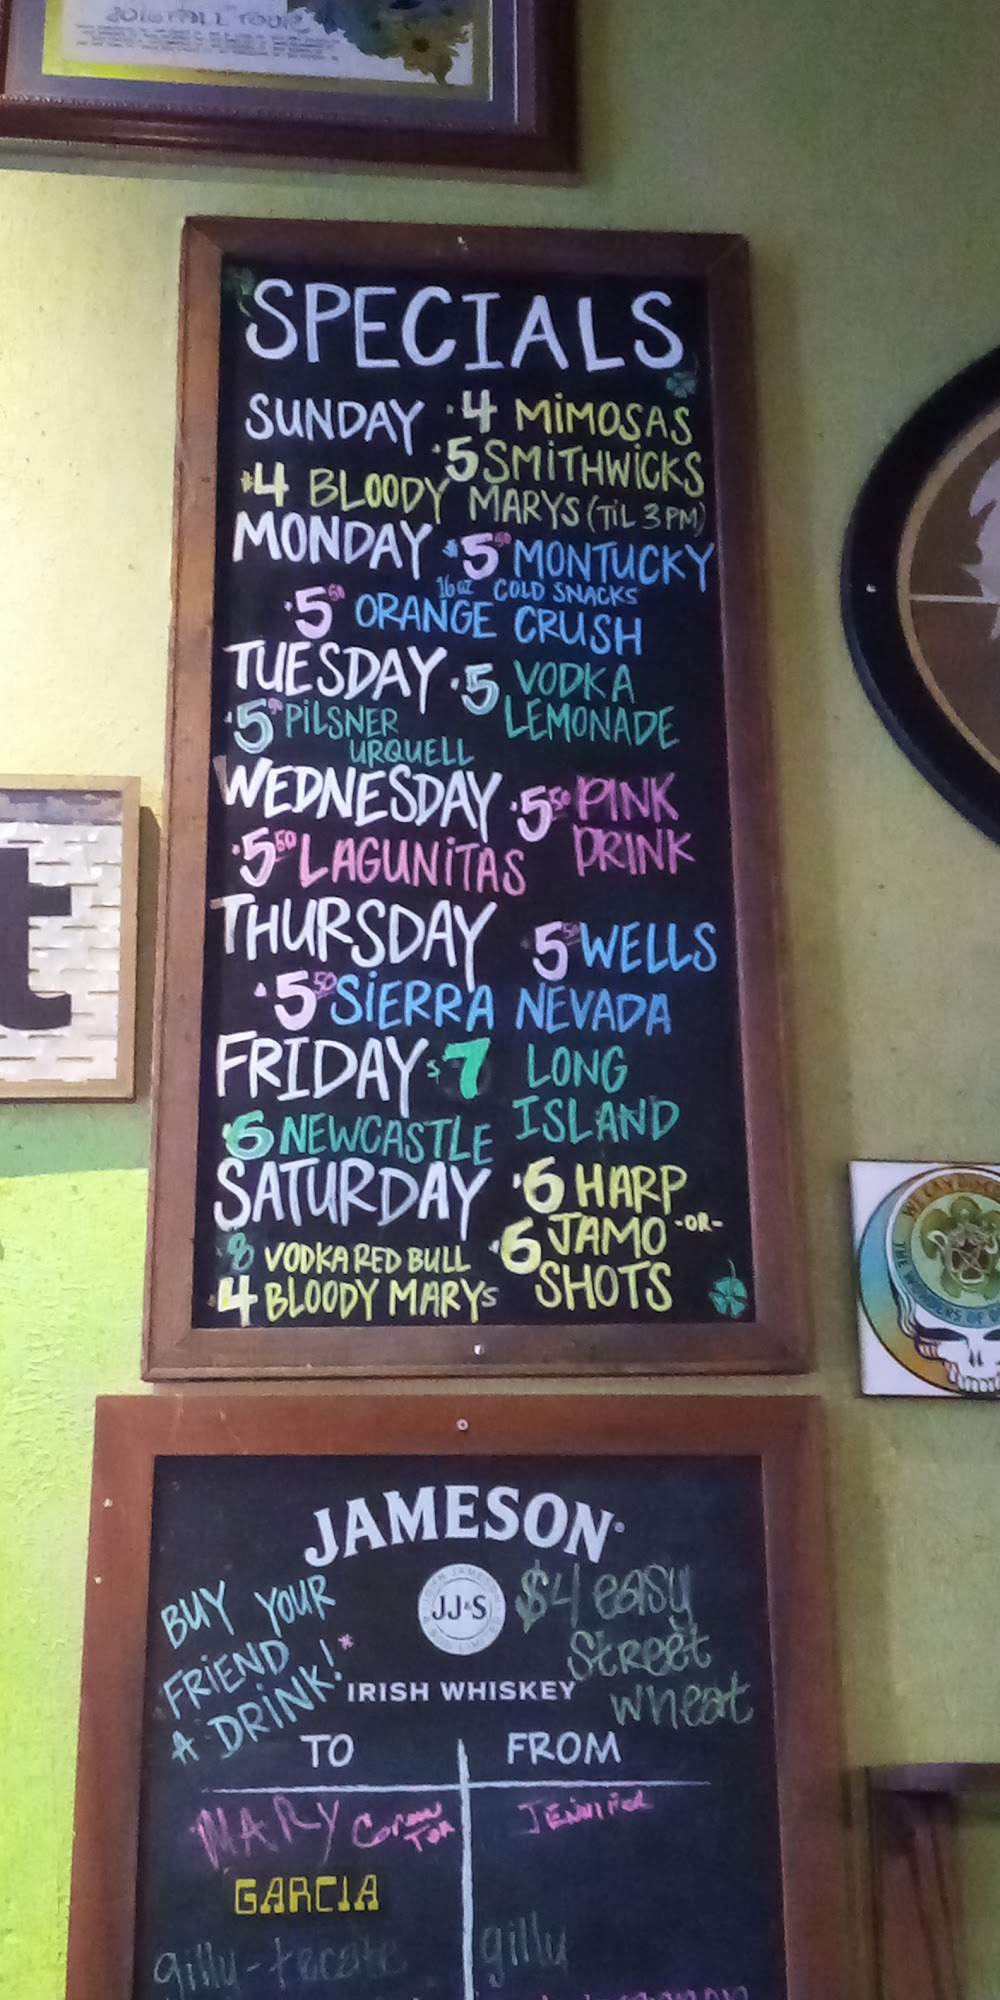 2016 FALL TOUR
SPECIALS
SUNDAY $4 MiMOSAS
$5 SMiTHWiCKS
$4 BLOODY MARYS (TiL 3 PM)
MONDAY $5.50 MONTUCKY
16oz COLD SNACKS
$5.50 ORANGE CRUSH
TUESDAY $5 VODKA
LEMONADE
$5.50 PiLSNER
URQUELL
WEDNESDAY $5.50 PINK
DRINK
$5.50 LAGUNiTAS
THURSDAY 5.50 WELLS
$5.50 SiERRA NEVADA
FRIDAY $7 LONG
ISLAND
6 NEWCASTLE
SATURDAY $6 HARP
-OR-
$6 JAMO
SHOTS
8 VODKA RED BULL
4 BLOODY MARYs
t
WE CAN DISC
THE WONDERS OF
JAMESON
JOHN JAMESON
JJ&S
& SON LIMITED
IRISH WHISKEY
BUY YOUR
FRiEND
A DRiNK!*
$4 easy
Street
wheat
TO FROM
MARY JENNIFER
GARCIA
gilly-tecate gilly